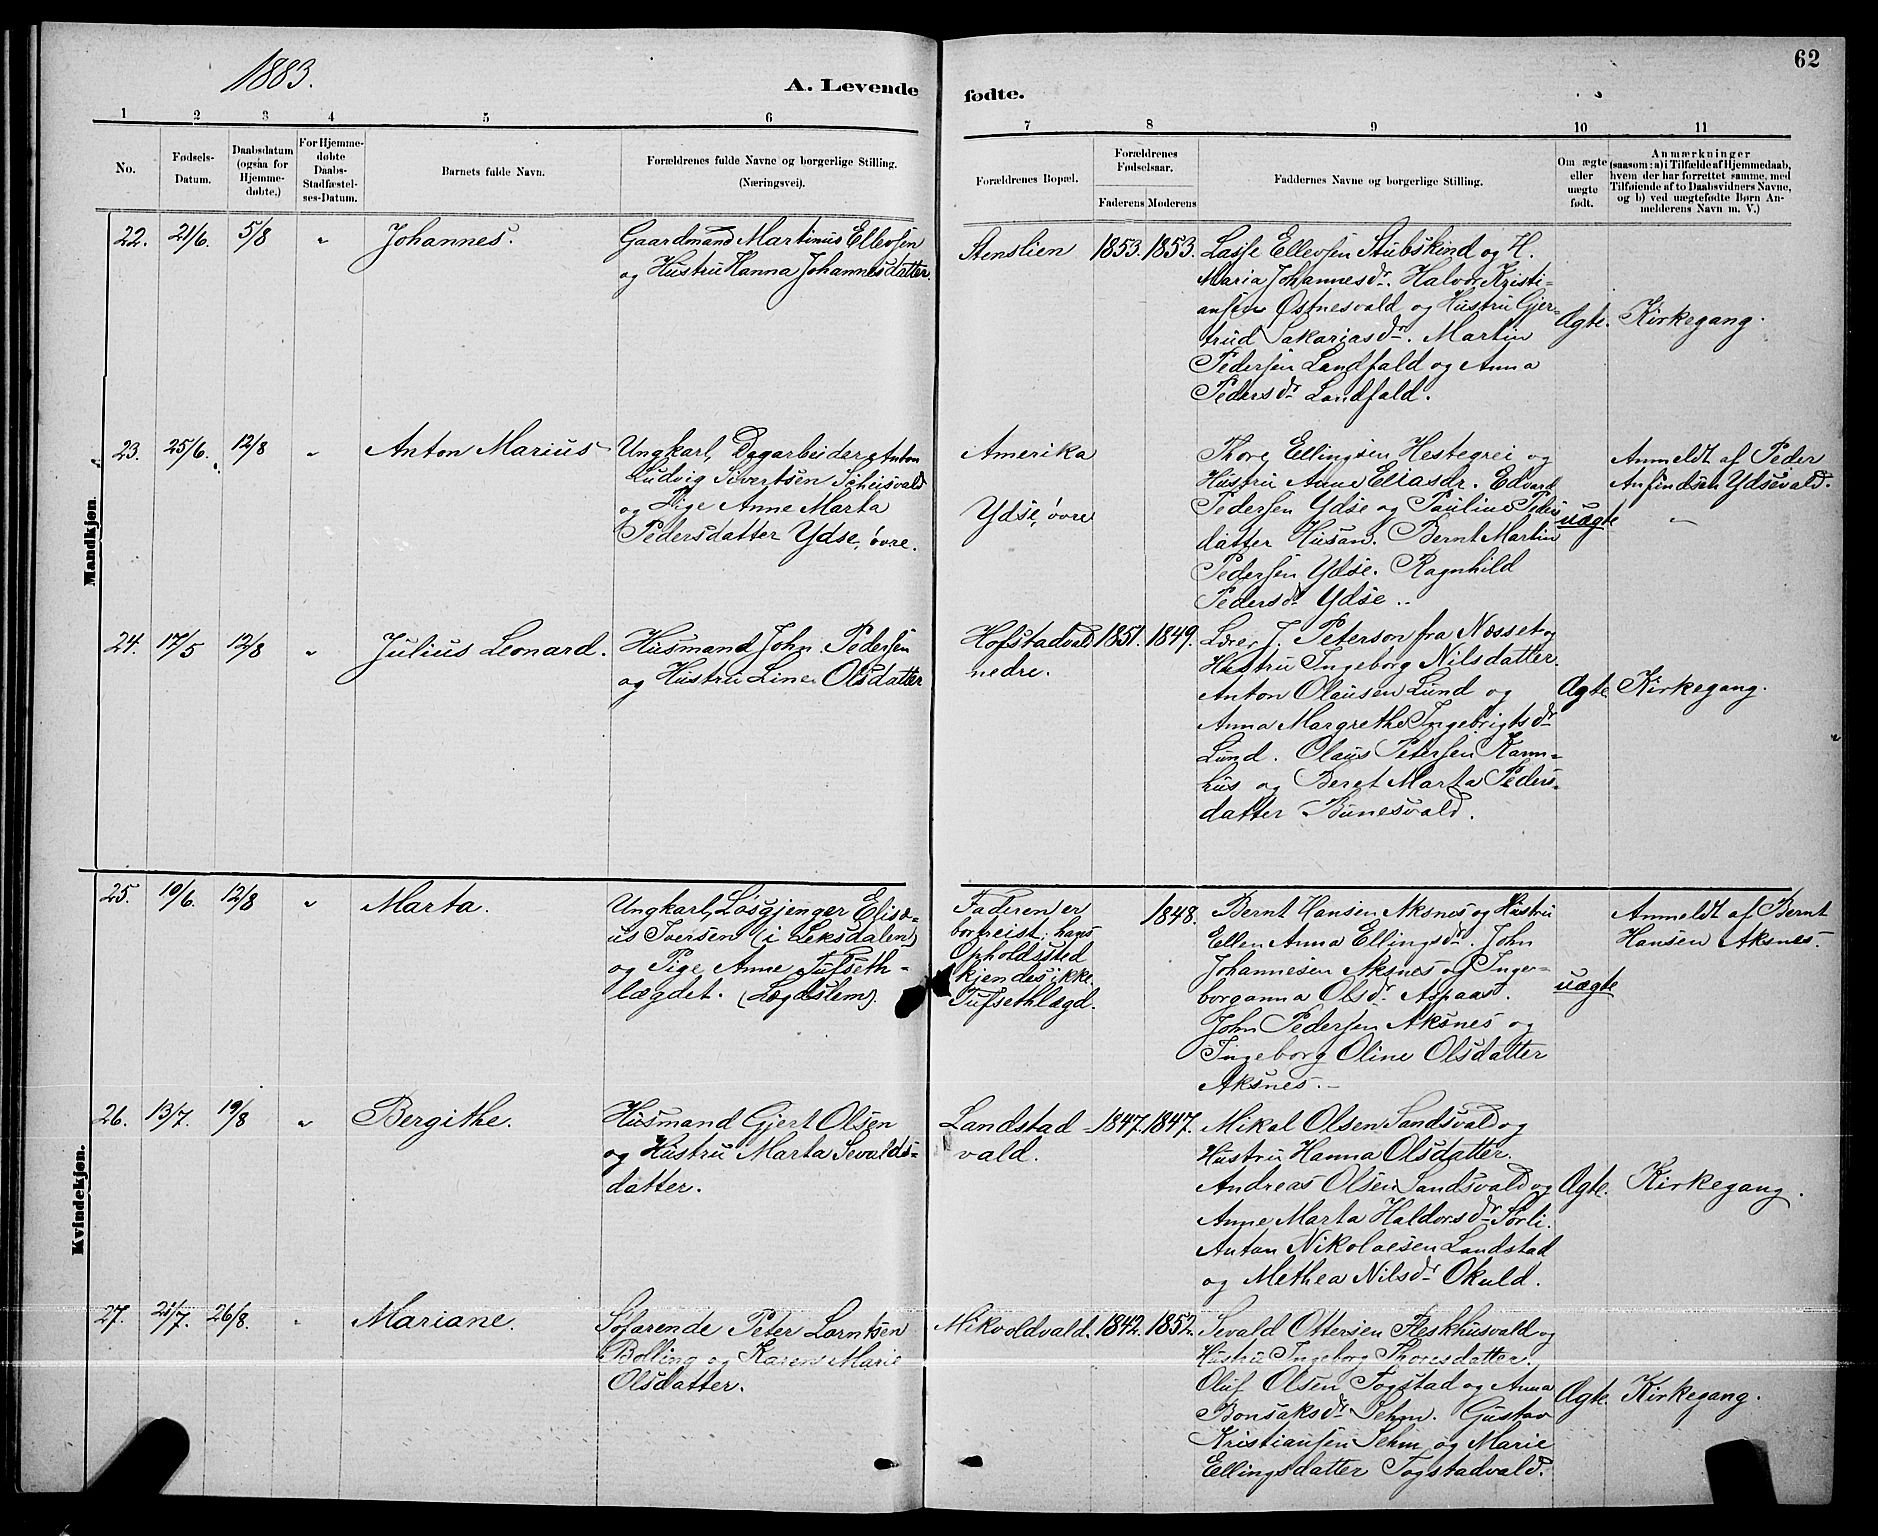 62
1883.
A. Levende fødte.
1 2 3 4 5 6 7 8 9 10 11
No.
Fødsels-
Datum.
Daabsdatum
(ogsaa for
Hjemme-
døbte.)
For Hjemme-
døbte
Daabs-
Stadfæstel-
ses-Datum.
Barnets fulde Navn.
Forældrenes fulde Navne og borgerlige Stilling.
(Næringsvei).
Forældrenes Bopæl.
Forældrenes
Fødselsaar.
Faderens Moderens
Faddernes Navne og borgerlige Stilling.
Om ægte
eller
uægte
født.
Anmærkninger
(saasom: a) i Tilfælde af Hjemmedaab,
hvem der har forrettet samme, med
Tilføiende af to Daabsvidners Navne,
og b) ved uægtefødte Børn An-
melderens Navn m. V.)
Mandkjøn
22. 21/6. 5/8 " Johannes.
Gaardmand Martinus Ellevsen
og Hustru Hanna Johannesdatter.
Stenslien 1853. 1853.
Lasse Ellevsen Stubskind og H.
Maria Johannesdr. Halvor Kristi-
ansen Østnesvald og Hustru Gjer-
trud Sakariasdr. Martin
Pedersen Landfald og Anna
Pedersdr Landfald.
Ægte. Kirkegang.
23. 25/6. 12/8 " Anton Marius
Ungkarl, Dagarbeider Anton
Ludvig Sivertsen
og Pige Anne Marta
Pedersdatter Ydse, øvre.
Amerika
Ydse, øvre
Thore Ellingsen Hestegrei og
Hustru Anne Eliasdr. Edvard
Pedersen Ydse og Pauline Peders
datter Husan. Bernt Martin
Pedersen Ydse. Ragnhild
Pedersdr Ydse..
uægte
Anmeldt af Peder
Anfindsen Ydsevald.
"
24. 17/5 12/8 " Julius Leonard.
Husmand John Pedersen
og Hustru Line Olsdatter
Hofstadvald
nedre.
1851. 1849.
Lærer J. Peterson fra Næsset og
Hustru Ingeborg Nilsdatter.
Anton Olausen Lund og
Anna Margrethe Ingebrigtsdr
Lund. Olaus Petersen Kam-
hus og Beret Marta Peders-
datter Bunesvald.
Ægte Kirkegang.
Kvindekjøn.
25. 19/6. 12/8 " Marta.
Ungkarl, Løsgjenger Elisæ-
us Iversen (i Leksdalen)
og Pige Anne Tufseth-
lægdet. (Lægdslem).
Faderen er
bortreist: hans
Opholdssted
kjendes ikke.
Tufsethlægd.
1848.
Bernt Hansen Aksnes og Hustru
Ellen Anna Ellingsdr. John
Johannesen Aksnes og Inge-
borganna Olsdr Aspaas.
John Pedersen Aksnes og
Ingeborg Oline Olsdatter
Aksnes.-
uægte
Anmeldt af Bernt
Hansen Aksnes.
26. 13/7. 19/8 " Bergithe.
Husmand Gjert Olsen
og Hustru Marta Sevalds-
datter.
Landstad
vald.
1847. 1847.
Mikal Olsen Sandsvald og
Hustru Hanna Olsdatter.
Andreas Olsen Sandsvald og
Anne Marta Haldorsdr Sørli.
Anton Nikolaesen Landstad
og Methea Nilsdr Okuld.
Ægte. Kirkegang.
27. 21/7. 26/8. " Mariane.
Søfarende Peter Larntsen
Bolling og Karen Marie
Olsdatter.
Mikvoldvald. 1842. 1852.
Sevald Ottersen Fleskhusvald og
Hustru Ingeborg Thoresdatter.
Oluf Olsen Togstad og Anna
Bonsaksdr Sehm. Gustav
Kristiansen Sehm og Marie
Ellingsdatter Togstadvald.
Ægte. Kirkegang.